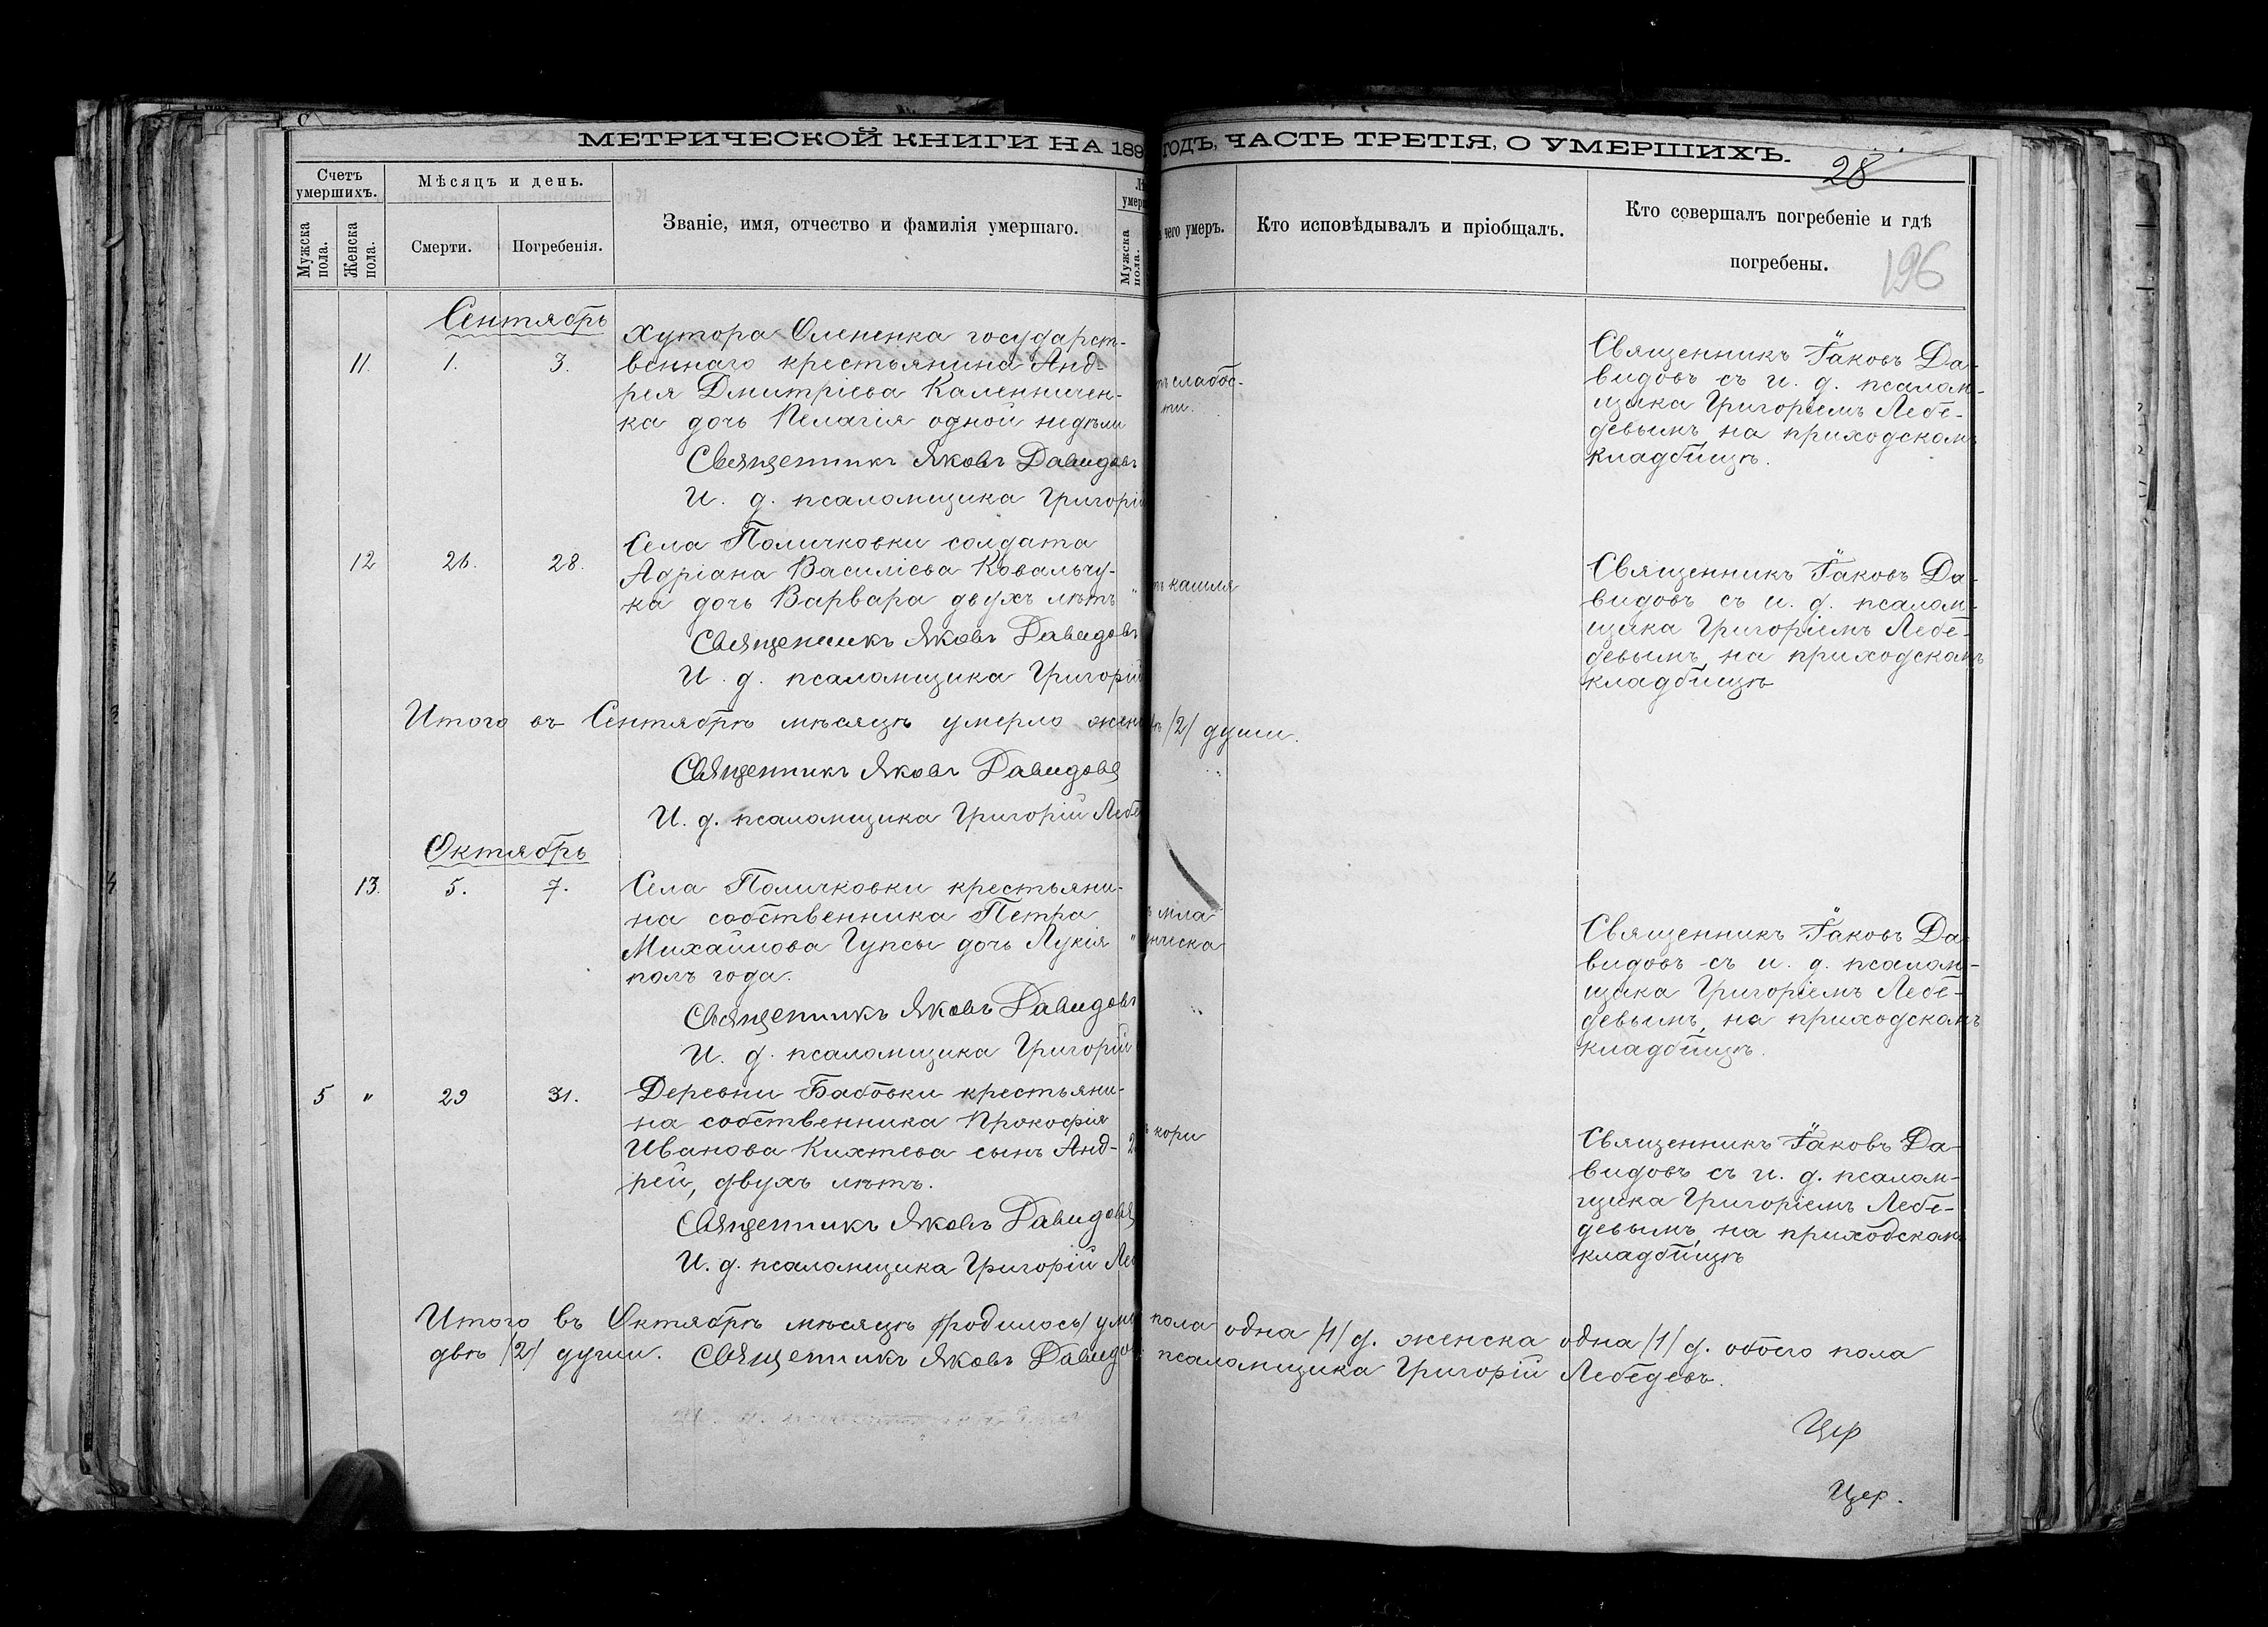 МЕТРИЧЕСКОЙ КНИГИ НА 189 ГОДЪ, ЧАСТЬ ТРЕТІЯ, О УМЕРШИХЪ.
28
196
Счетъ умершихъ.
Мужска пола.
Женска пола.
Мѣсяцъ и день.
Смерти.
Погребенія.
Званіе, имя, отчество и фамилія умершаго.
Мужска пола.
чего умеръ.
Кто исповѣдывалъ и пріобщалъ.
Кто совершалъ погребеніе и гдѣ
погребены.
Сентябрь
11. 1. 3.
Хутора Олененка государст-
веннаго крестьянина Анд-
рея Дмитріева Каленничен-
ка дочь Пелагія одной недѣли
слабос-
ти.
Священникъ Яковъ Давидовъ
И. д. псаломщика Григорій
Священникъ Іаковъ Да-
видовъ съ и. д. псалом-
щика Григоріемъ Лебе-
девымъ, на приходскомъ
кладбищѣ.
12 26. 28.
Села Поличковки солдата
Адріана Василіева Ковальчу-
ка дочь Варвара двухъ лѣтъ "
кашля
Священникъ Яковъ Давидовъ
И. д. псаломщика Григорій
Священникъ Іаковъ Да-
видовъ съ и. д. псалом-
щика Григоріемъ Лебе-
девымъ, на приходскомъ
кладбищѣ
Итого въ Сентябрѣ мѣсяцѣ умерло жен /2/ души.
Священникъ Яковъ Давидовъ
И. д. псаломщика Григорій Лебе
Октябрь
13. 5. 7.
Села Поличковки крестьяни-
на собственника Петра
Михайлова Гупсы дочь Лукія "
полъ года.
мла
ическа
Священникъ Яковъ Давидовъ
И. д. псаломщика Григорій
Священникъ Іаковъ Да-
видовъ съ и. д. псалом-
щика Григоріемъ Лебе-
девымъ, на приходскомъ
кладбищѣ.
5 " 29 31.
Деревни Бабовки крестьяни-
на собственника Прокофія
Иванова Кихтева сынъ Анд- 2
рей, двухъ лѣтъ.
кори
Священникъ Яковъ Давидовъ
И. д. псаломщика Григорій Леб
Священникъ Іаковъ Да-
видовъ съ и. д. псалом-
щика Григоріемъ Лебе-
девымъ, на приходскомъ
кладбищѣ
Итого въ Октябрѣ мѣсяцѣ /родилось/ уме пола одна /1/ д. женска одна /1/ д. обоего пола
двѣ /2/ души. Священникъ Яковъ Давидовъ псаломщика Григорій Лебедевъ.
Цер
Цер.